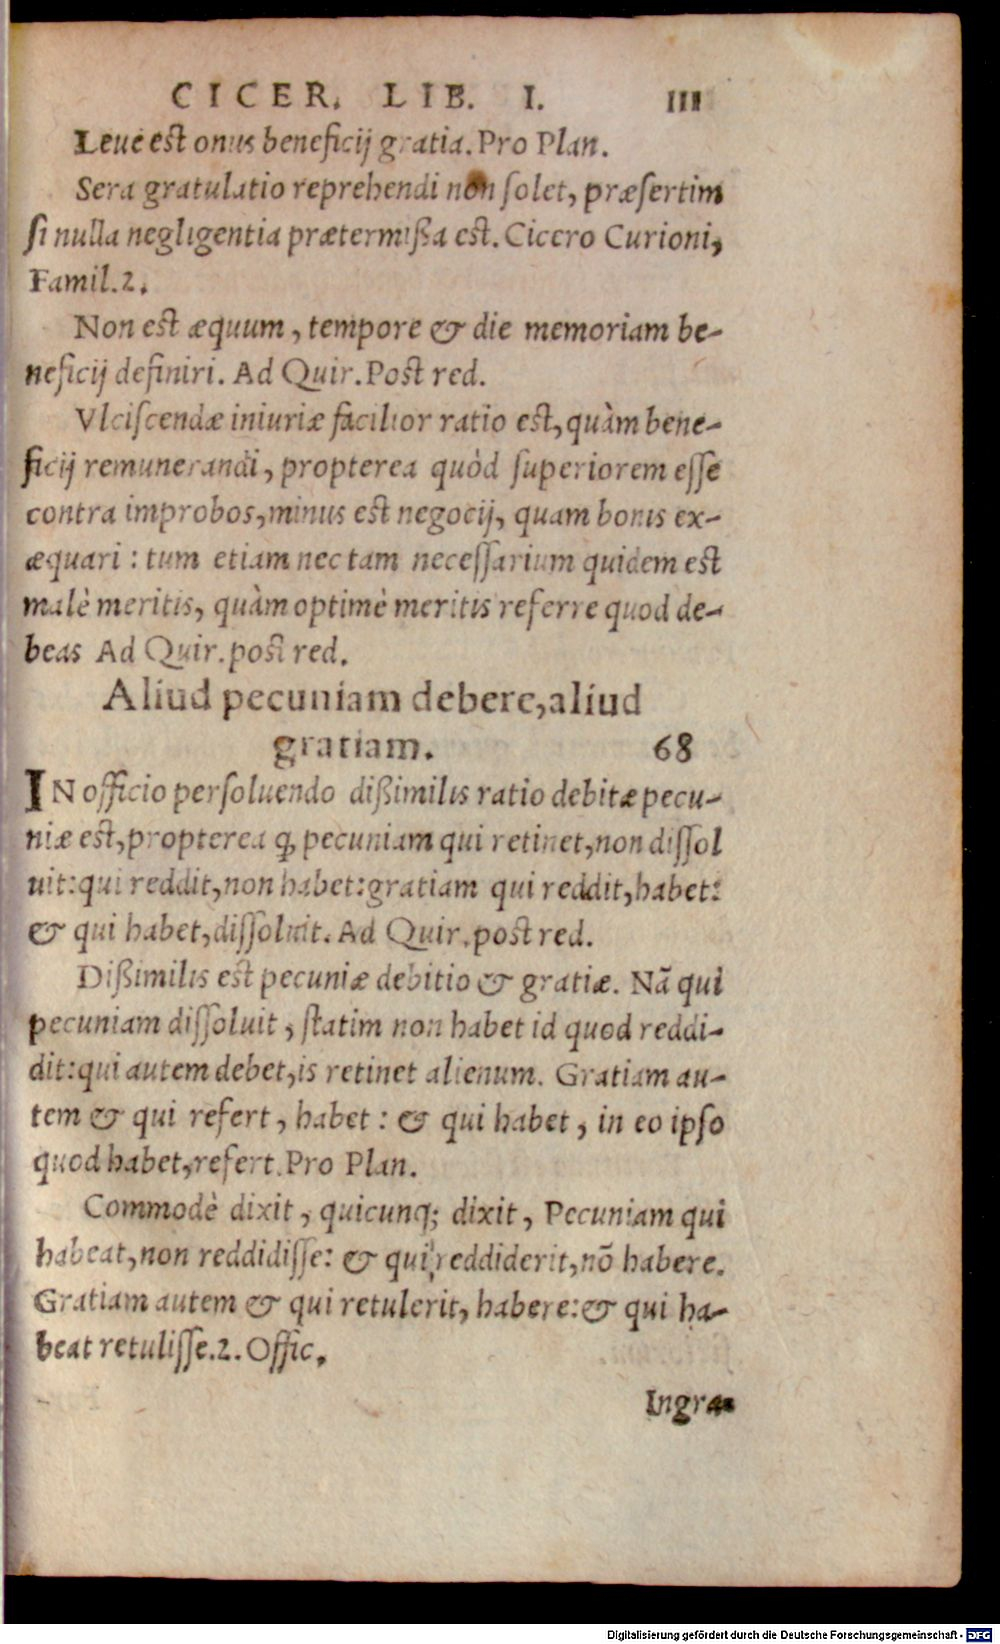 CICER. LIB. I. III
Leue est onus beneficij gratia. Pro Plan.
Sera gratulatio reprehendi non solet, præsertim
si nulla negligentia prætermißa est. Cicero Curioni,
Famil.2.
Non est æquum, tempore & die memoriam be-
neficij definiri. Ad Quir. Post red.
Vlciscendæ iniuriæ facilior ratio est, quàm bene-
ficij remunerandi, propterea quòd superiorem esse
contra improbos, minus est negocij, quam bonis ex-
æquari: tum etiam nec tam necessarium quidem est
malè meritis, quàm optimè meritis referre quod de-
beas Ad Quir. post red.
Aliud pecuniam debere, aliud
gratiam. 68
IN officio persoluendo dißimilis ratio debitæ pecu-
niæ est, propterea ꝙ pecuniam qui retinet, non dissol
uit: qui reddit, non habet: gratiam qui reddit, habet:
& qui habet, dissoluit. Ad Quir. post red.
Dißimilis est pecuniæ debitio & gratiæ. Nã qui
pecuniam dissoluit, statim non habet id quod reddi-
dit: qui autem debet, is retinet alienum. Gratiam au-
tem & qui refert, habet: & qui habet, in eo ipso
quod habet, refert. Pro Plan.
Commodè dixit, quicunq; dixit, Pecuniam qui
habeat, non reddidisse: & qui reddiderit, nõ habere.
Gratiam autem & qui retulerit, habere: & qui ha-
beat retulisse. 2. Offic.
Ingra-
Digitalisierung gefördert durch die Deutsche Forschungsgemeinschaft - DFG